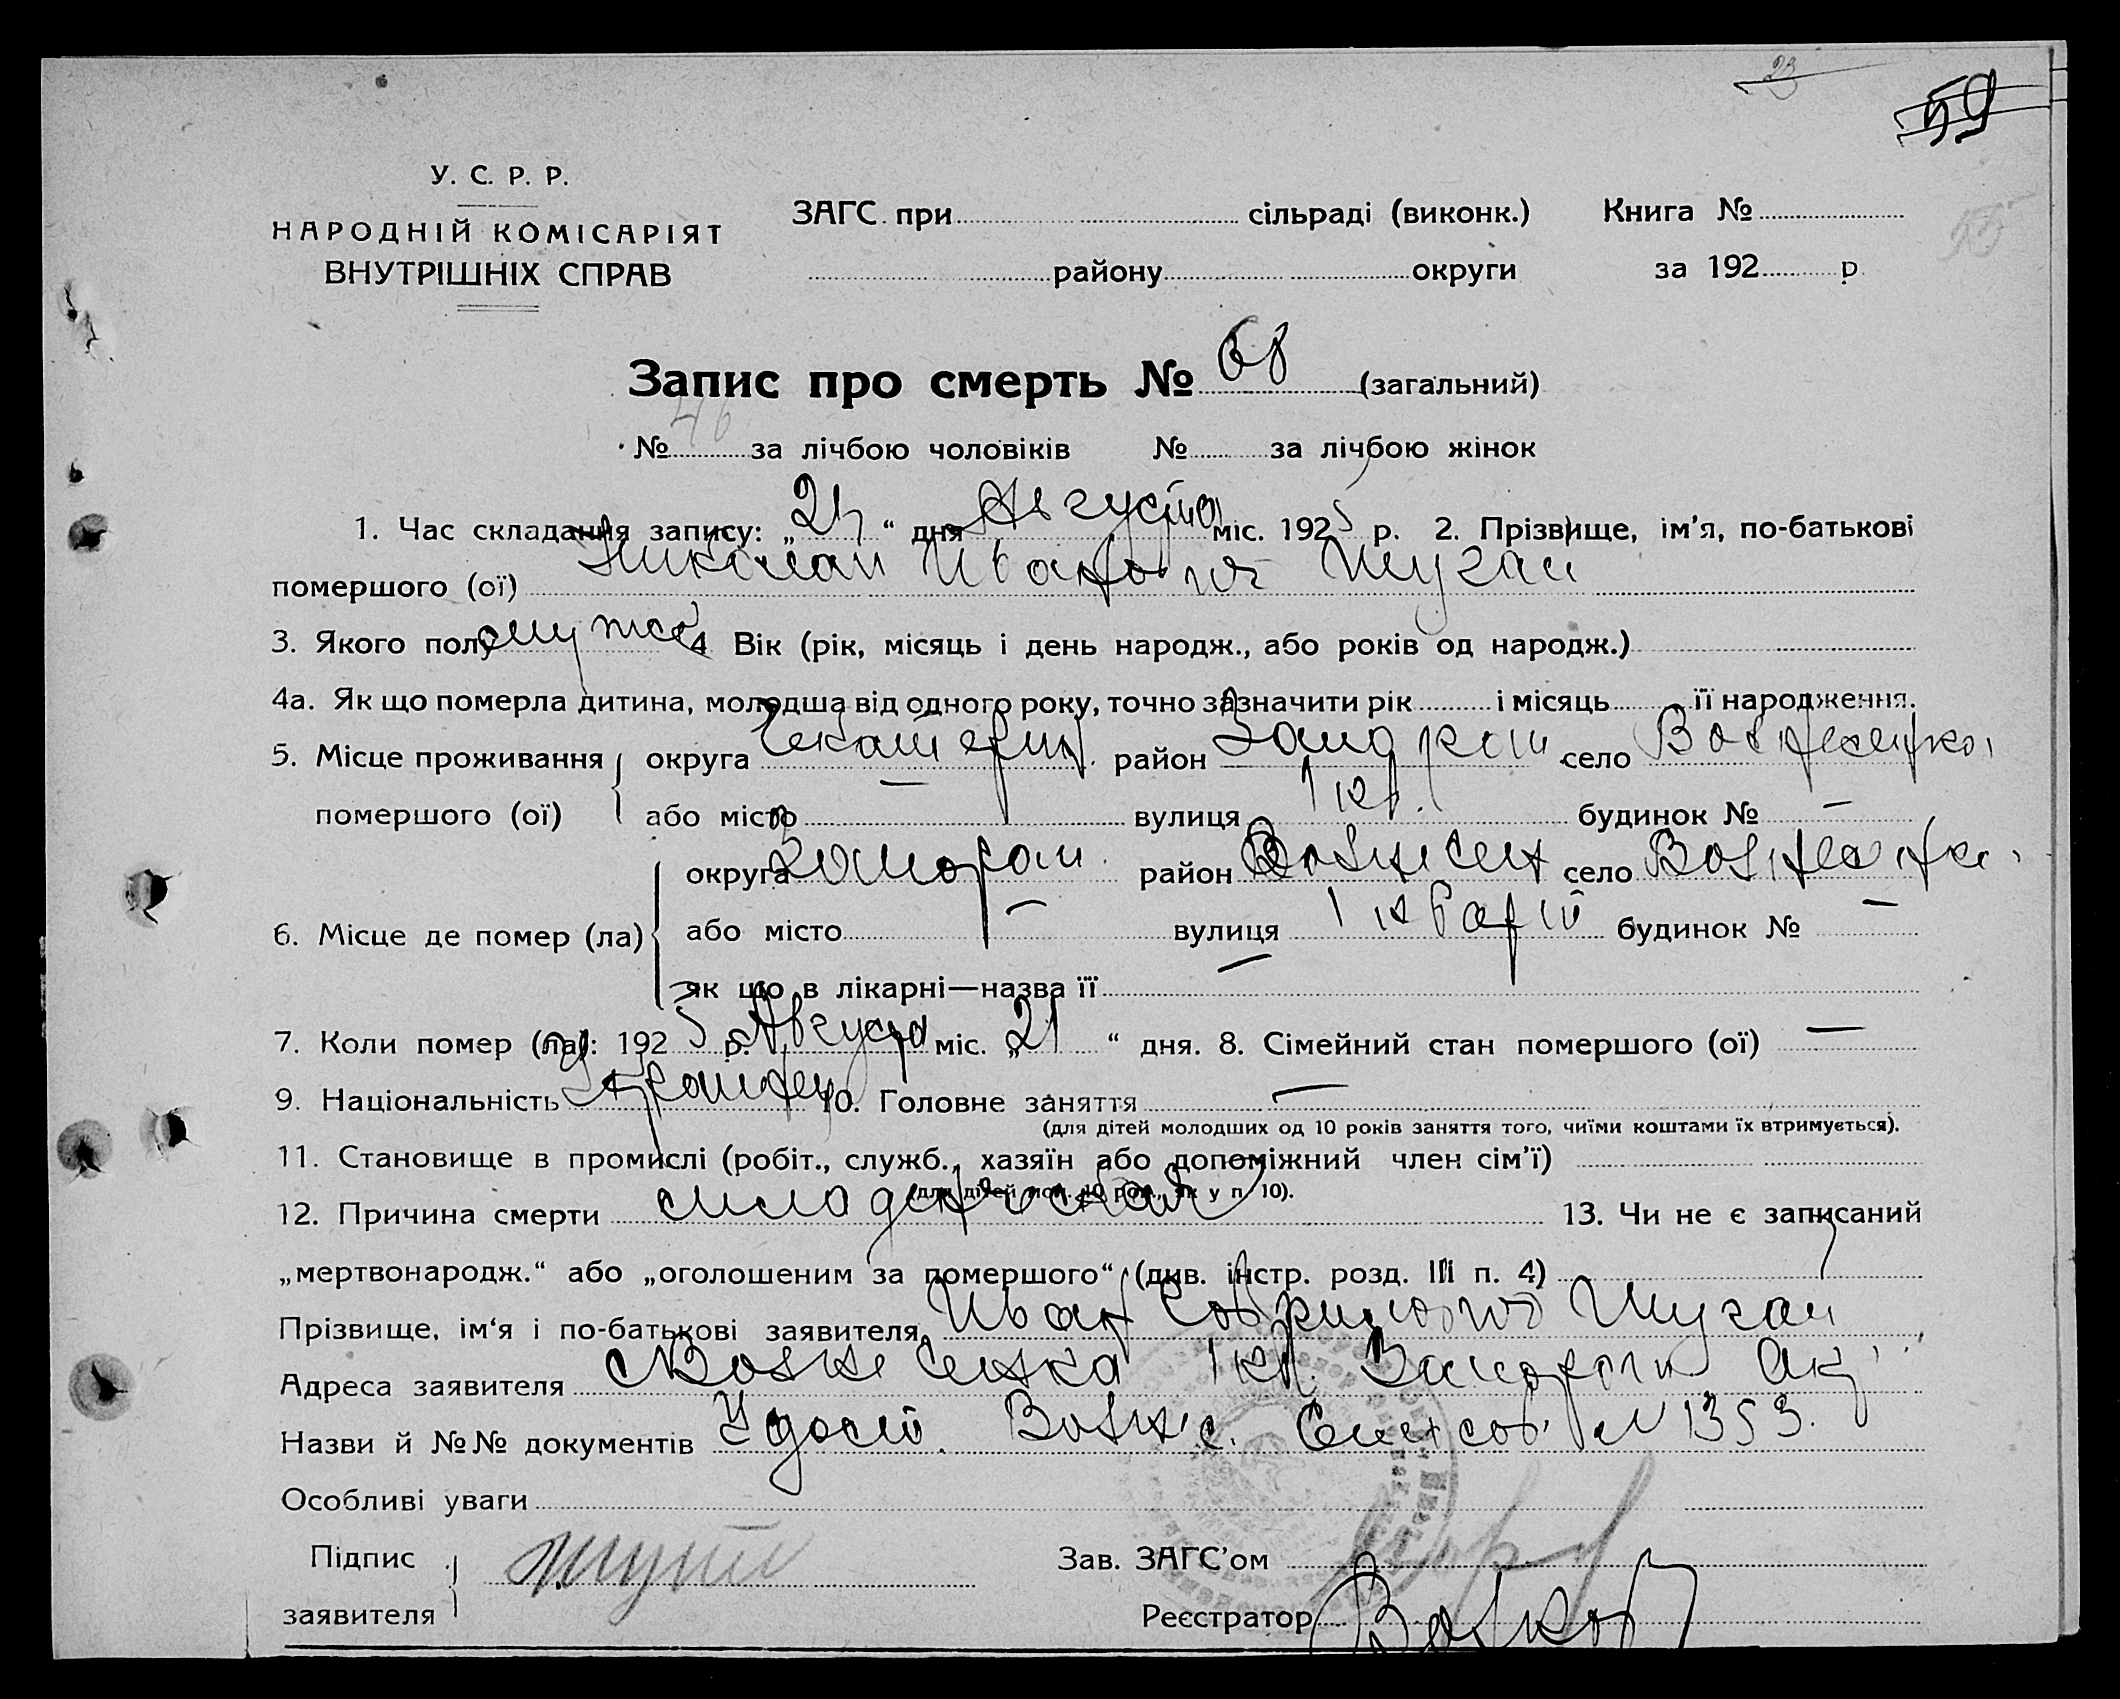 23
59
55
У. С. Р. Р.
НАРОДНІЙ КОМІСАРІЯТ
ВНУТРІШНІХ СПРАВ
ЗАГС при сільраді (виконк.)
району округи
Книга №
за 192 р.
Запис про смерть № 68 (загальний)
№ 46 за лічбою чоловіків № за лічбою жінок
1. Час складання запису: „ “ дня Августа міс. 1925 р. 2. Прізвище, ім’я, по-батькові
помершого (ої) Николай Иванович Шугай
3. Якого полу муж 4 Вік (рік, місяць і день народж., або років од народж.)
4а. Як що померла дитина, молодша від одного року, точно зазначити рік і місяць її народження.
5. Місце проживання помершого (ої) округа Екатерин. район село
або місто — вулиця 1 кв. будинок № —
6. Місце де помер (ла) округа район Вознесен село
або місто — вулиця 1 будинок № —
як що в лікарні—назва її —
7. Коли помер (ла): 1925 р. Августа міс. „21“ дня. 8. Сімейний стан помершого (ої) —
9. Національність 10. Головне заняття —
(для дітей молодших од 10 років заняття того, чиїми коштами їх втримується).
11. Становище в промислі (робіт., служб., хазяїн або допоміжний член сім’ї)
(для дітей мол. 10 рок., як у п. 10).
12. Причина смерти младенческая 13. Чи не є записаний
„мертвонародж.“ або „оголошеним за помершого“ (див. інстр. розд. III п. 4)
Прізвище, ім‘я і по-батькові заявителя Иван Шугай
Адреса заявителя Вознесенка 1 кв. Запорож Окр
Назви й №№ документів Удост. Вознес. №1353.
Особливі уваги
Підпис заявителя
Зав. ЗАГС’ом
Реєстратор